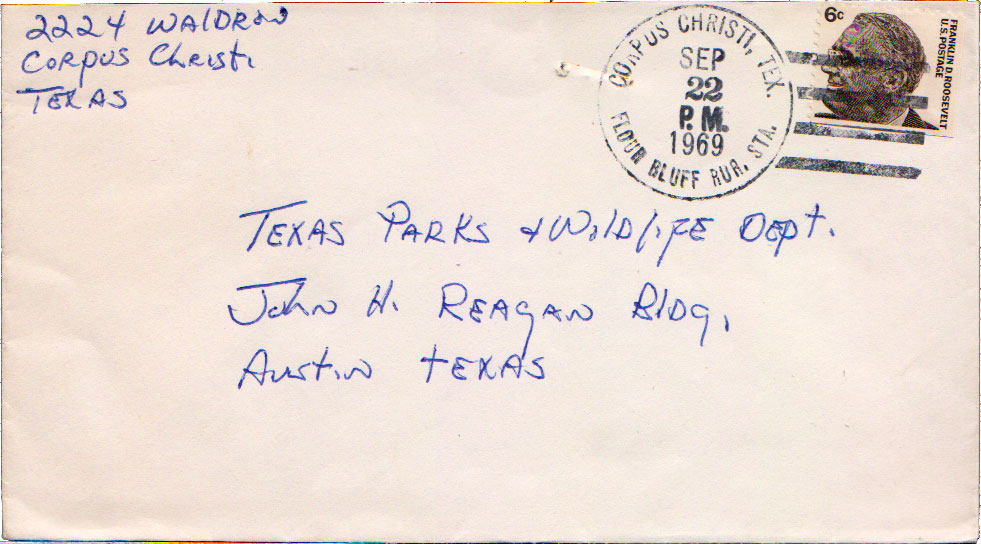 2224 WAlDRON
CORPUS Christi
TEXAS
CORPUS CHRISTI, TEX.
SEP
22
P.M.
1969
FLOUR BLUFF RUR. STA.
6c
FRANKLIN D ROOSEVELT
U.S. POSTAGE
TEXAS PARKS & WilDlifE DEpt.
John H. REAGAN BlDg.
Austin tEXAS